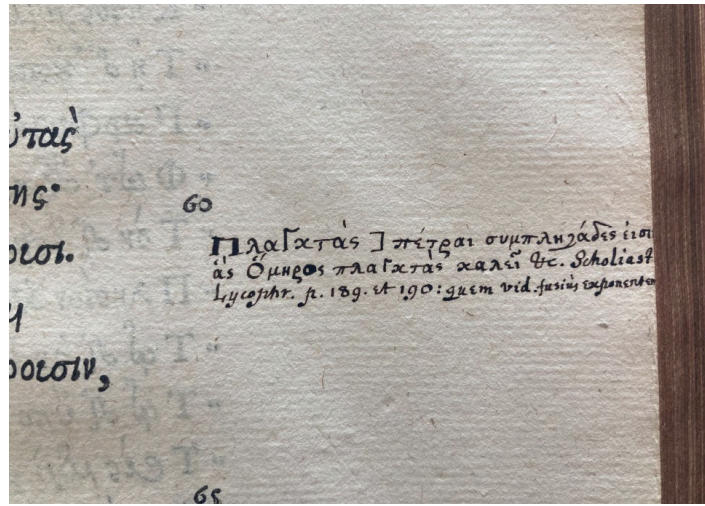 60
Πλαγκτὰς ] πέτραι συμπληγάδες εἰσι
ἁς Ὅμηρος πλαγκτὰς καλεῖ &c. Scholiast
Lycophr. p. 189. et 190: quem vid. fusiùs exponentem
65